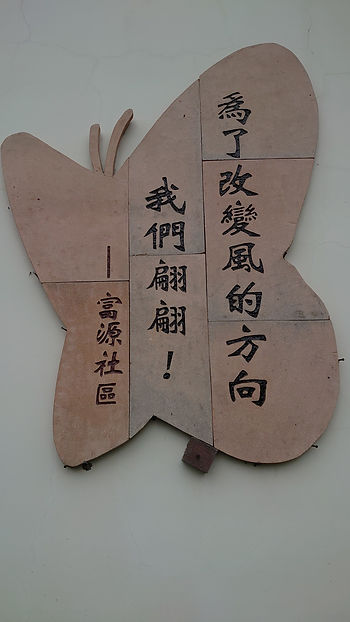 為了改變風的方向
我們翩翩！
—富源社區